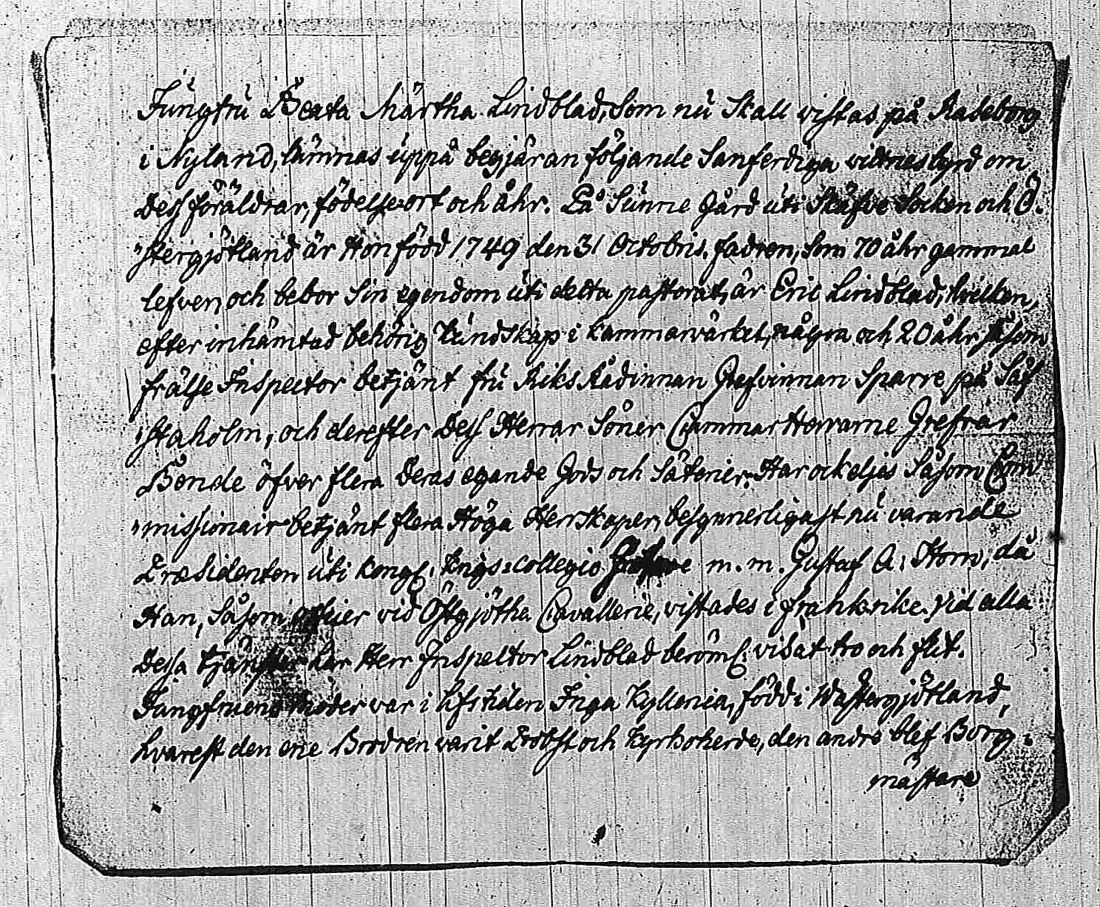 Jungfru Beata Märtha Lindblad, Som nu Skall vistas på Raseborg
i Nyland, lämnas uppå begjäran följande Sanferdiga vittnesbyrd om
Dess föräldrar, födelseort och åhr. På Sunne Gård uti Skäfve Socken och Ö-
stergjötland är Hon född 1749 den 31 Octobris. Fadren, Som 70 åhr gammal
lefver, och bebor Sin egendom uti detta pastorat, är Eric Lindblad, hvilken,
efter inhämtad behörig Kundskap i Kammarvärket, några och 20 åhr såsom
frälse Inspector betjänt fru Riks Rådinnan Grefvinnan Sparre på Säf-
staholm, och derefter Dess Herrar Söner Cammar Herrarne Grefvar
Bonde öfver flera Deras egande Gods och Säterier. Har ock eljes Såsom Com-
missionair betjänt flera Höga Herrskaper, besynnerligast nu varande
Præsidenten uti Kongl. Krigs-Collegio m. m. Gustaf A. Horn, då
Han, Såsom vid Östgjötha Cavallerie, vistades i frankrike. Vid alla
Dessa tjänster har Herr Inspector Lindblad beröml. visat tro och flit.
Jungfruens Moder var i lifstiden Inga Kyllenia, född i Wästergjötland,
hvarest den ene Brodren varit Probst och Kyrkoherde, den andre blef Borg-
mästare